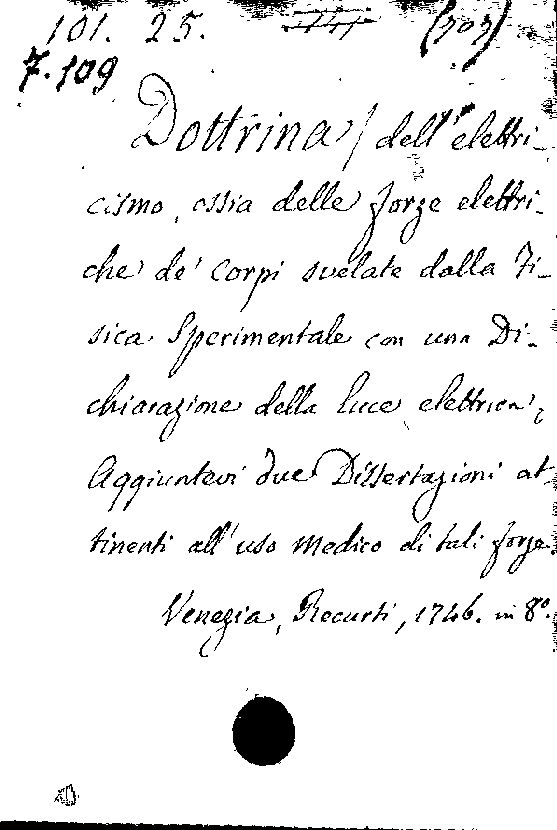 101. 25. (707)
7.109
Dottrina / dell'elettri-
cismo, ossia delle forze elettri-
che de' corpi svelate dalla Fi-
sica Sperimentale con una Di-
chiarazione della luce elettrica,
Aggiuntevi due Dissertazioni at-
tinenti all'uso medico di tali forze.
Venezia, Recurti, 1746. in 8º.